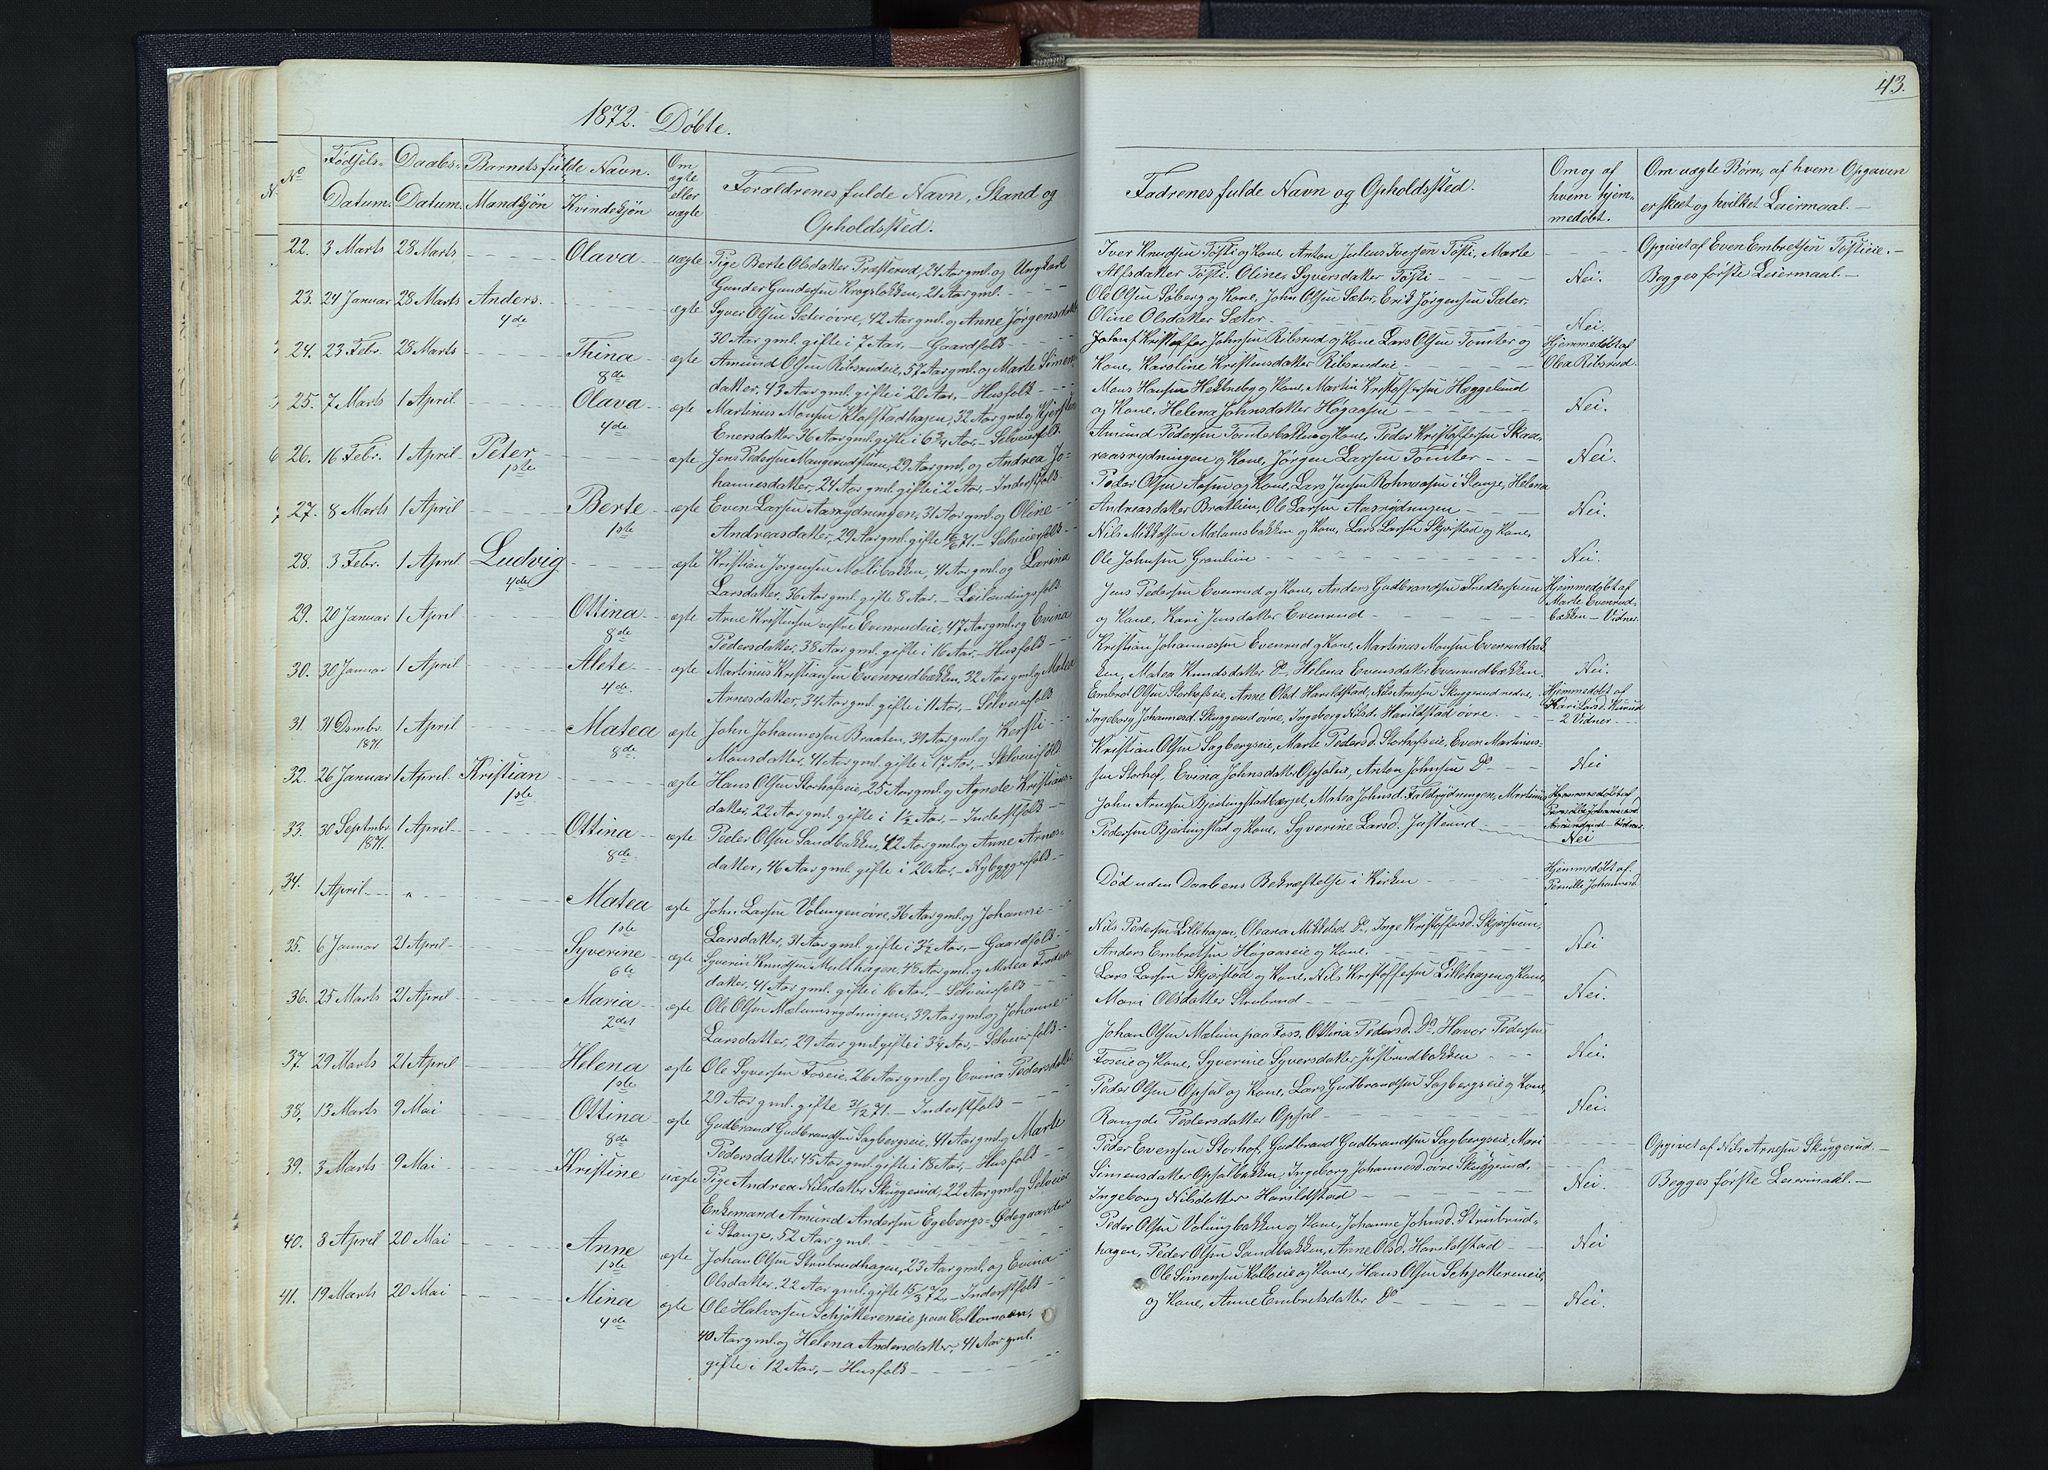 1872. Døbte.
43.
No
Fødsels-
Datum.
Daabs-
Datum.
Barnets fulde Navn.
Mandkjøn
Kvindekjøn
Om
ægte
eller
uægte
Forældrenes fulde Navn, Stand og
Opholdssted.
Fadrenes fulde Navn og Opholdssted.
Om og af
hvem hjem-
medøbt.
Om uægte Børn, af hvem Opgaven
er skeet og hvilket Leiermaal. —
22. 3 Marts 28 Marts Olava uægte Pige Berte Olsdatter Præsterud, 24 Aar gml. og Ungkarl
Gunder Gundersen Krogsbakken, 21 Aar gml.
Iver Knudsen Tøsti og Kone, Anton Julius Iversen Tøsti, Marte
Alfsdatter Tøsti. Oline Syversdatter Tøsti
Nei.
Opgivet af Even Embretsen Tøstieie. —
Begges første Leiermaal —
23. 24 Januar 28 Marts Anders. 4de ægte Syver Olsen Sæter øvre, 42 Aar gml. og Anne Jørgensdatter
30 Aar gml. gifte i 7 Aar. — Gaardfolk
Ole Olsen Søberg og Kone, John Olsen Sæter, Erik Jørgensen Sæter.
Oline Olsdatter Sæter.
Nei.
24. 23 Febr. 28 Marts Thina 8de ægte Amund Olsen Ribsrudeie, 57 Aar gml. og Marte Simens-
datter, 43 Aar gml. gifte i 20 Aar. — Husfolk
Johan Kristoffer Johnsen Ribsrud og Kone Lars Olsen Tomter og
Kone, Karoline Kristensdatter Ribsrudeie
Hjemmedøbt af
Olea Ribsrud.
25. 7 Marts 1 April. Olava 4de ægte Martinus Monsen Klofstadhagen, 32 Aar gml. og Kjersti
Enersdatter 36 Aar gml. gifte i 6 3/4 Aar. — Selveierfolk
Mons Hansen Hekneby og Kone, Martin Kristoffersen Hyggelund
og Kone, Helena Johnsdatter Høgaasen
Nei.
26. 16 Febr. 1 April Peter 1ste ægte Jens Pedersen Mangerudstuen, 29 Aar gml. og Andrea Jo-
hannesdatter, 24 Aar gml. gifte i 2 Aar. — Inderstfolk
Amund Pedersen Tomterbakken og Kone, Peder Kristoffersen Skaa-
raasrydningen og Kone, Jørgen Larsen Tomter
Nei.
27. 8 Marts 1 April Berte 1ste ægte Even Larsen Aasrydningen, 31 Aar gml. og Oline
Andreasdatter, 29 Aar gml. gifte 71 — Selveierfolk
Peder Olsen Aasen og Kone, Lars Jensen Rohnaasen i Stange, Helena
Andreasdatter Bratlien, Ole Larsen Aasrydningen
Nei.
28. 3 Febr. 1 April. Ludvig 4de ægte Kristian Jørgensen Mollibakken, 41 Aar gml. og Larina
Larsdatter, 36 Aar gml. gifte 8 Aar. — Leilændingsfolk
Nils Mikkelsen Mælumsbakken og Kone, Lars Larsen Skjerstad og Kone,
Ole Johnsen Granlien
Nei
29. 20 Januar 1 April Ottina 8de ægte Arne Kristensen vestre Evenrudeie, 47 Aar gml. og Evina
Pedersdatter, 38 Aar gml. gifte i 16 Aar. — Husfolk
Jens Pedersen Evenrud og Kone, Anders Gudbrandsen
og Kone, Kari Jensdatter Evenrud
Hjemmedøbt af
Marte Evenrud-
bakken — Vidner.
30. 30 Januar 1 April Alete 4de ægte Martinus Kristiansen Evenrudbakken, 32 Aar gml. og Matea
Arnesdatter, 34 Aar gml. gifte i 11 Aar. — Selveierfolk
Kristian Johannessen Evenrud og Kone, Martinus Monsen Evenrudbak-
ken, Matea Knudsdatter Do Helena Evensdatter Evenrudbakken.
Nei
31. 31 Dsmbr. 1871. 1 April Matea 8de ægte John Johannessen Braaten, 39 Aar gml. og Kersti
Monsdatter, 41 Aar gml. gifte i 17 Aar. — Selveierfolk
Embret Olsen Storhofseie, Anne Olsd. Harildstad, Nils Arnesen Skuggerud nedre,
Ingeborg Johannesd. Skuggerud øvre, Ingeborg Nilsd. Harildstad øvre.
Hjemmedøbt af
Kari Larsd. Kirud
— 2 Vidner —
32. 26 Januar 1 April Kristian 1ste ægte Hans Olsen Storhofseie, 25 Aar gml. og Agnete Kristians-
datter, 22 Aar gml. gifte i 1 1/2 Aar. — Inderstfolk
Kristian Olsen Sagbergseie, Marte Pedersd. Storhofseie, Even Martinus-
sen Storhof, Evina Johnsdatter Opsalus, Anton Johnsen Do
Nei
33. 30 Septmbr. 1871. 1 April Ottina 8de ægte Peder Olsen Sandbakken, 42 Aar gml. og Anne Arnes-
datter, 46 Aar gml. gifte i 20 Aar. — Nybyggerfolk
John Arnesen Bjerlingstadbærget, Matea Johnsd. Faldrydningen, Martinus
Pedersen Bjerlingstad og Kone, Syverine Larsd. Justerud
Nei
34. 1 April " Matea 1ste ægte John Larsen Volungen øvre, 36 Aar gml. og Johanne
Larsdatter, 31 Aar gml. gifte i 3 1/2 Aar. — Gaardfolk
Død uden Daabens Bekræftelse i Kirken
Hjemmedøbt af
Pernille Johannesd.
35. 6 Januar 21 April Syverine 6te ægte Syverin Knudsen Melthagen, 45 Aar gml. og Matea
datter, 41 Aar gml. gifte i 16 Aar. — Selveierfolk
Nils Pedersen Lillehagen, Oleana Mikkelsd. Do, Inge Kristoffersd. Skjærsveen,
Anders Embretsen Høgaaseie og Kone.
Nei
36. 25 Marts 21 April Maria 2det ægte Ole Olsen Mælumsrydningen, 39 Aar gml. og Johanne
Larsdatter, 29 Aar gml. gifte i 3 1/4 Aar. — Selveierfolk
Lars Larsen Skjærstad og Kone, Nils Kristoffersen Lillehagen og Kone,
Mari Olsdatter Strubrud
Nei.
37. 29 Marts 21 April Helena 1ste ægte Ole Syversen Foseie, 26 Aar gml. og Evina Pedersdatter
29 Aar gml. gifte 31/12 71. — Inderstfolk
Johan Olsen Mælum paa Foss. Ottina Pedersd. Do, Haver Pedersen
Foseie og Kone, Syverine Syversdatter Justrudbakken
Nei.
38. 13 Marts 9 Mai Ottina 8de ægte Gudbrand Gudbrandsen Sagbergseie, 41 Aar gml. og Marte
Pedersdatter 45 Aar gml. gifte i 18 Aar. — Husfolk
Peder Olsen Opsal og Kone, Lars Gudbrandsen Sagbergseie og Kone,
Rangdi Pedersdatter Opsal
Nei.
39. 3 Marts 9 Mai Kristine uægte Pige Andrea Nilsdatter Skuggerud, 22 Aar gml. og Selveier
Enkemand Amund Andersen Egebergs-Ødegaarden
i Stange, 52 Aar gml.
Peder Evensen Storhof, Gudbrand Gudbrandsen Sagbergseie, Mari
Simensdatter Opsalbakken, Ingeborg Johannesd. øvre Skuggerud,
Ingeborg Nilsdatter Harildstad
Nei
Opgivet af Nils Arnesen Skuggerud. —
Begges første Leiermaal. —
40. 3 April 20 Mai Anne 1ste ægte Johan Olsen Strubrudhagen, 23 Aar gml. og Evina
Olsdatter 22 Aar gml. gifte 15/3 72. — Inderstfolk
Peder Olsen Volungbakken og Kone, Johanne Johnsd. Strubrud-
hagen, Peder Olsen Sandbakken, Anne Olsd. Harildstad
Nei
41. 19 Marts 20 Mai Mina 4de ægte Ole Halvorsen Schjøttereneie paa
40 Aar gml. og Helena Andersdatter, 41 Aar gml.
gifte i 12 Aar. — Husfolk
Ole Simensen Kolloeie og Kone, Hans Olsen Schjøttereneie,
og Kone, Anne Embretsdatter Do
Nei.